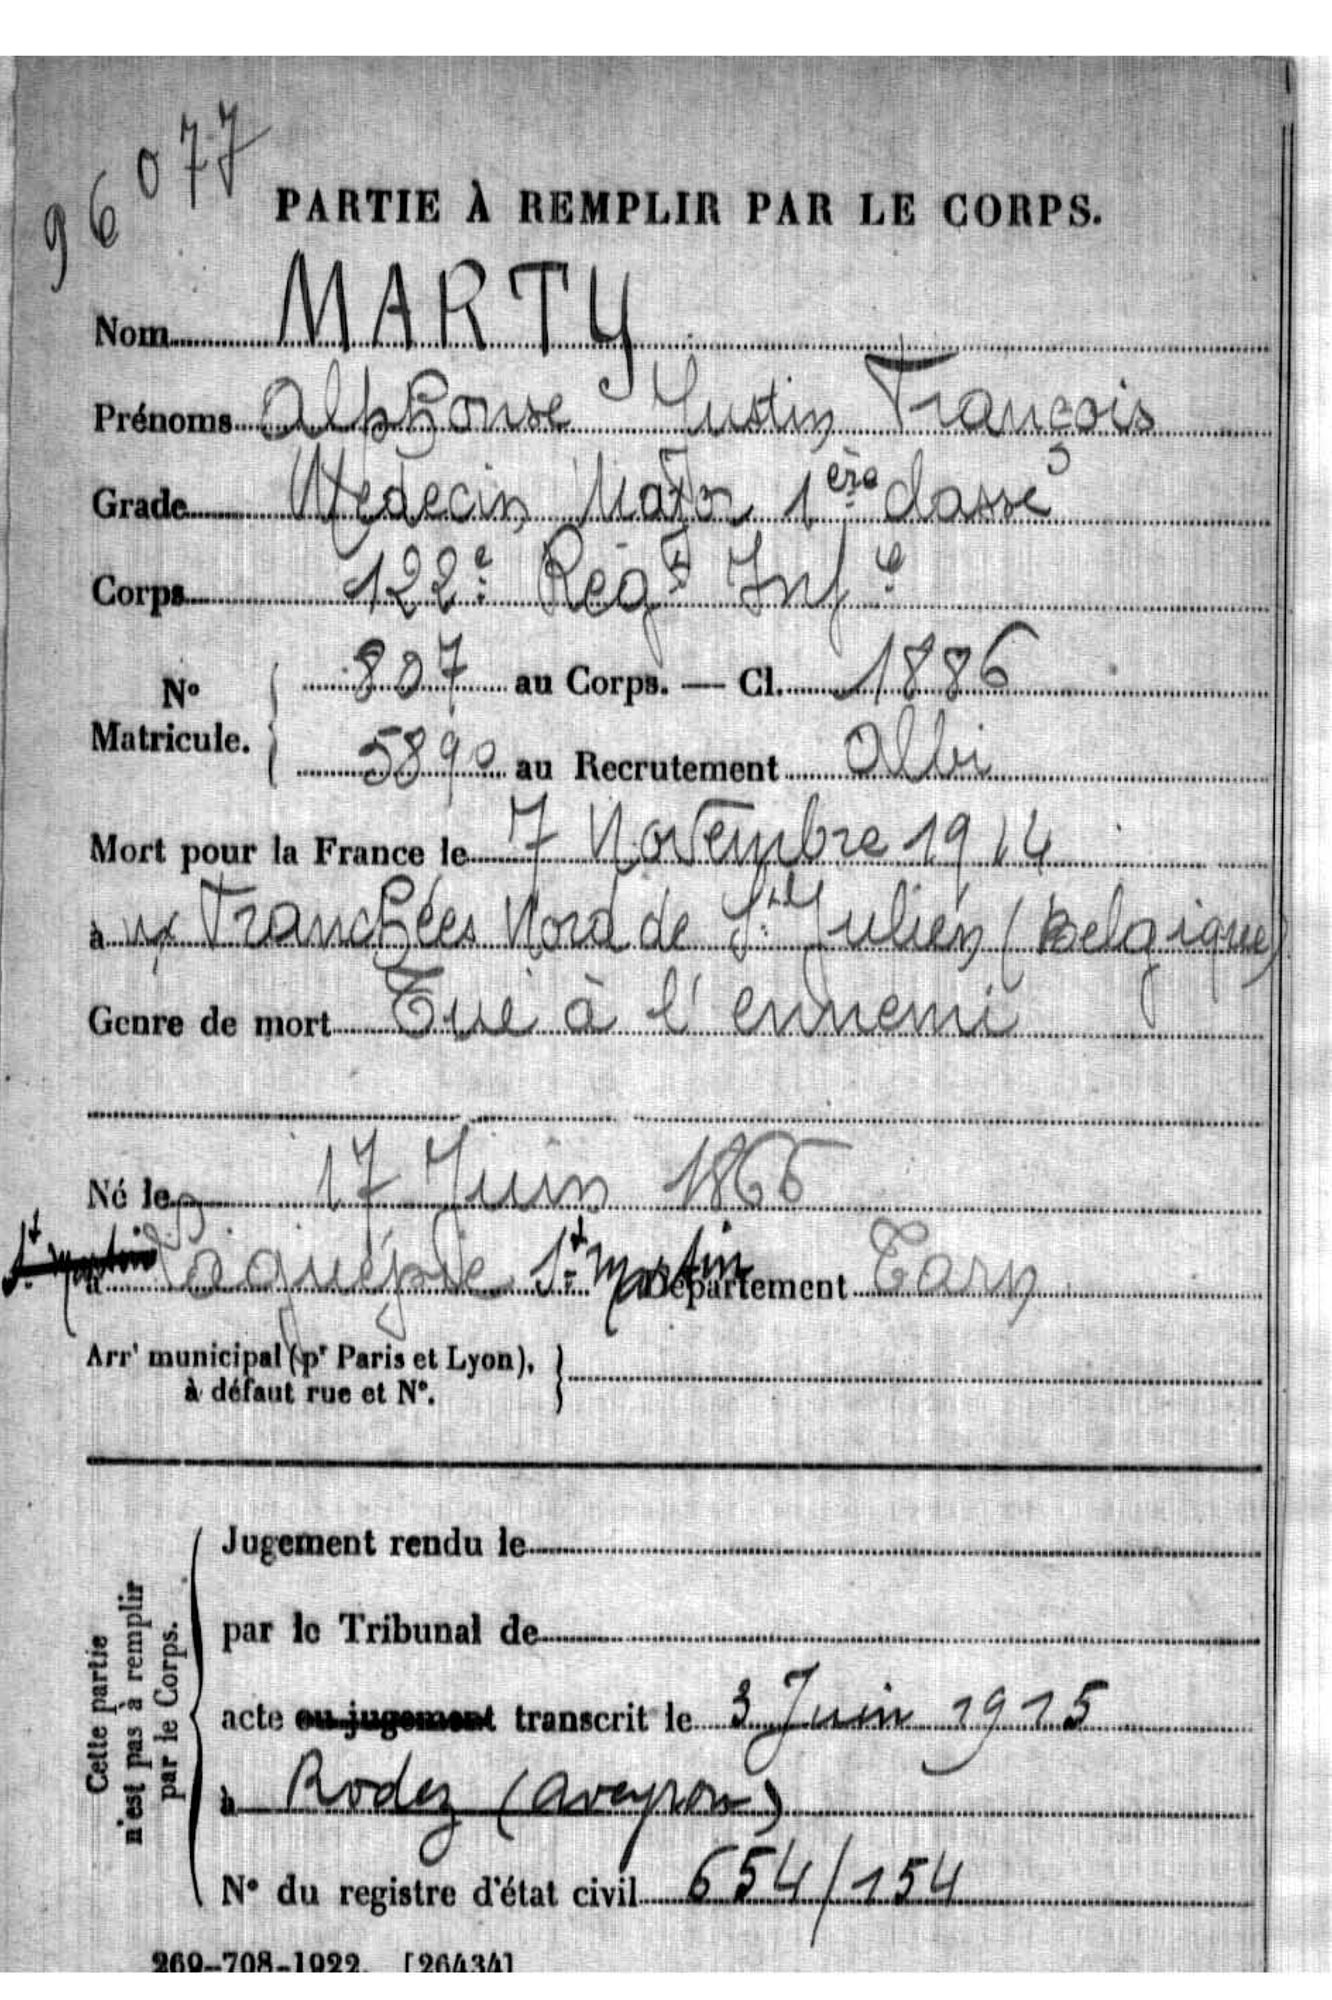 96077
PARTIE À REMPLIR PAR LE CORPS.
Nom MARTY
Prénoms Alphonse Justin François
Grade Médecin Major 1ère classe
Corps 122e Régt Infie
No Matricule. 807 au Corps. — Cl. 1886
5890 au Recrutement Albi
Mort pour la France le 7 Novembre 1914
à ux Tranchées Nord de St Julien (Belgique)
Genre de mort Tué à l'ennemi
Né le 17 Juin 1866
St Martin
à Laguépie St Martin Département Tarn
Arrt municipal (pr Paris et Lyon),
à défaut rue et No.
Cette partie
n'est pas à remplir
par le Corps.
Jugement rendu le
par le Tribunal de
acte ou jugement transcrit le 3 Juin 1915
à Rodez (Aveyron)
No du registre d'état civil 654/154
269-708-1922. [26434]